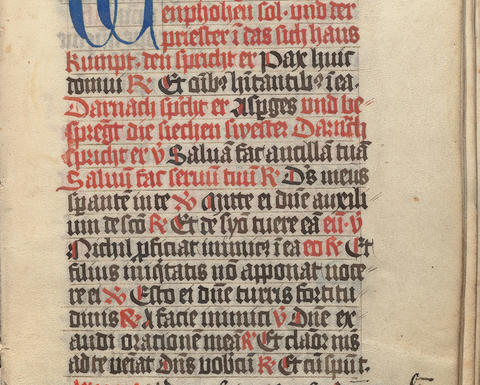 enpholhen sol · vnd der
priester i das sich haus
kumpt · den spricht er Pax huic
domui R Et oib9 hitantib9 i ea ·
Darnach spicht er Asperges vnd be
sprengt die siechen swester Darnach
spricht er V Saluã fac ancillã tuã
Saluũ fac seruũ tuũ R Ds meus
spantē in te V Mitte ei dñe auxili
um de sco R Et de syõ tuere ea eũ · V
Nichil pficiat inimic9 i ea eo R Et
filius iniqtatis nõ apponat noce
re ei V Esto ei dñe turris fortitu
dinis R A facie inimici V Dñe ex
audi orationē meã R Et clãor me9
ad te veniat Dns vobiscũ R Et cũ spũ t ·